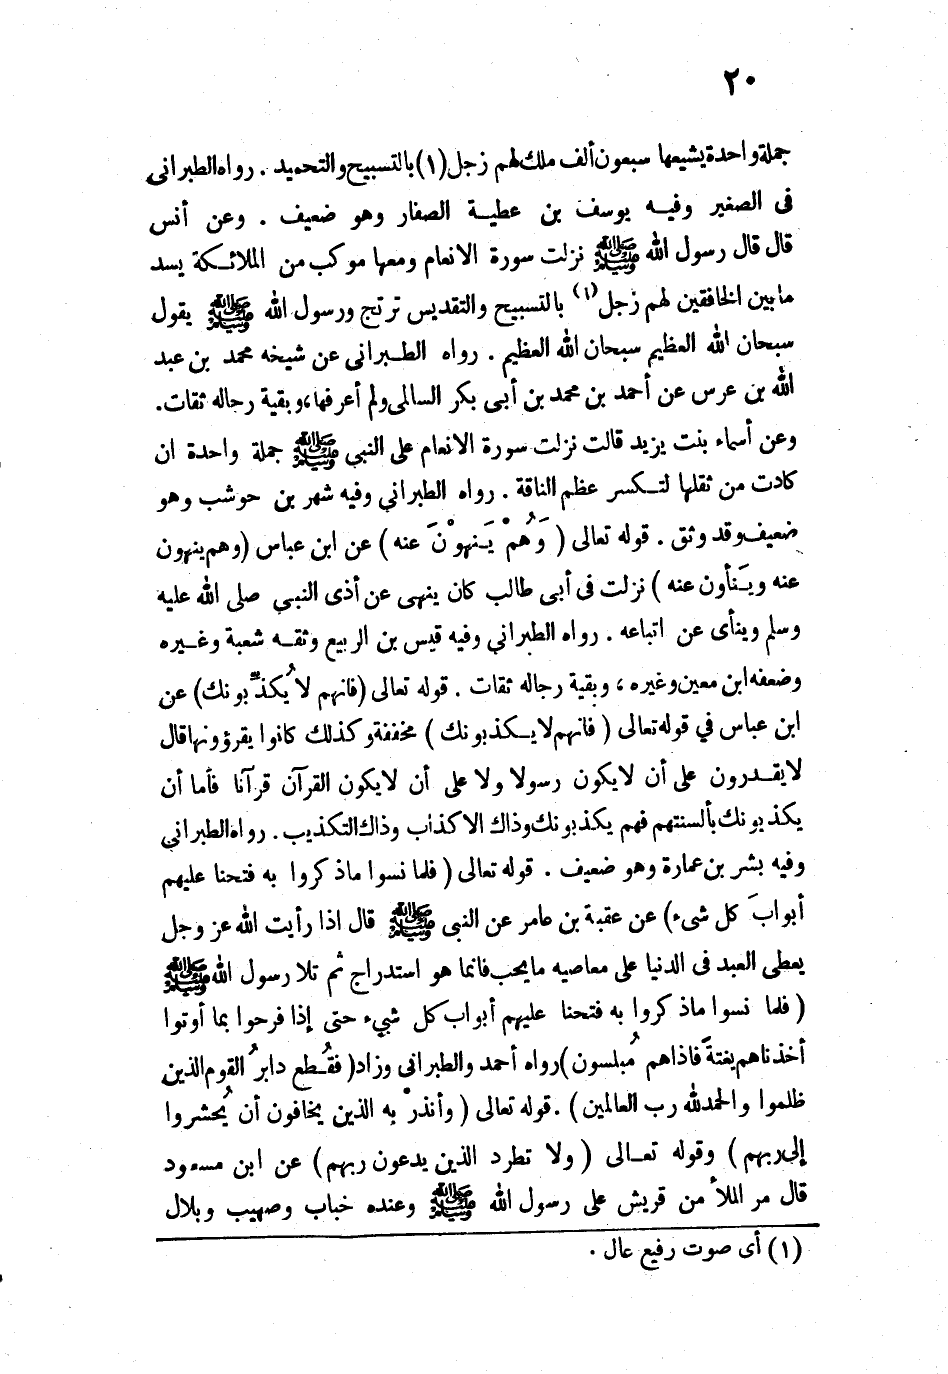 ٢٠
جملة واحدة يشيعها سبعون ألف ملك لهم زجل (١) بالتسبيح والتحميد . رواه الطبراني
فى الصغير وفيه يوسف بن عطية الصفار وهو ضعيف . وعن أنس
قال قال رسول الله ﷺ نزلت سورة الانعام ومعها موكب من الملائكة يسد
مابين الخافقين لهم زجل (١) بالتسبيح والتقديس ترتج ورسول الله ﷺ يقول
سبحان الله العظيم سبحان الله العظيم . رواه الطبراني عن شيخه محمد بن عبد
الله بن عرس عن أحمد بن محمد بن أبى بكر السالمى ولم أعرفها، وبقية رجاله ثقات.
وعن أسماء بنت يزيد قالت نزلت سورة الانعام على النبي ﷺ جملة واحدة ان
كادت من ثقلها لتكسر عظم الناقة . رواه الطبراني وفيه شهر بن حوشب وهو
ضعيف وقد وثق . قوله تعالى ( وَهُمْ يَنهوْنَ عنه ) عن ابن عباس (وهم ينهون
عنه وينأون عنه ) نزلت فى أبى طالب كان ينهى عن أذى النبي صلى الله عليه
وسلم وينأى عن اتباعه . رواه الطبراني وفيه قيس بن الربيع وثقه شعبة وغيره
وضعفه ابن معين وغيره ، وبقية رجاله ثقات . قوله تعالى (فانهم لا يُكذّبونك) عن
ابن عباس في قوله تعالى ( فانهم لا يكذبونك ) مخففة وكذلك كانوا يقرؤونها قال
لا يقدرون على أن لا يكون رسولا ولا على أن لا يكون القرآن قرآنا فأما أن
يكذبونك بألسنتهم فهم يكذبونك وذاك الاكذاب وذاك التكذيب . رواه الطبراني
وفيه بشر بن عمارة وهو ضعيف . قوله تعالى ( فلما نسوا ماذكروا به فتحنا عليهم
أبوابَ كل شىء ) عن عقبة بن عامر عن النبى ﷺ قال اذا رأيت الله عز وجل
يعطى العبد فى الدنيا على معاصيه مايحب فانما هو استدراج ثم تلا رسول الله ﷺ
( فلما نسوا ماذكروا به فتحنا عليهم أبواب كل شيء حتى إذا فرحوا بما أوتوا
أخذناهم بغتةً فاذاهم مُبلسون ) رواه أحمد والطبرانى وزاد ( فقُطع دابرُ القوم الذين
ظلموا والحمدلله رب العالمين ) . قوله تعالى ( وأنذرْ به الذين يخافون أن يُحشروا
إلى ربهم ) وقوله تعالى ( ولا تطرد الذين يدعون ربهم ) عن ابن مسعود
قال مر الملأ من قريش على رسول الله ﷺ وعنده خباب وصهيب وبلال
(١) أى صوت رفيع عال .